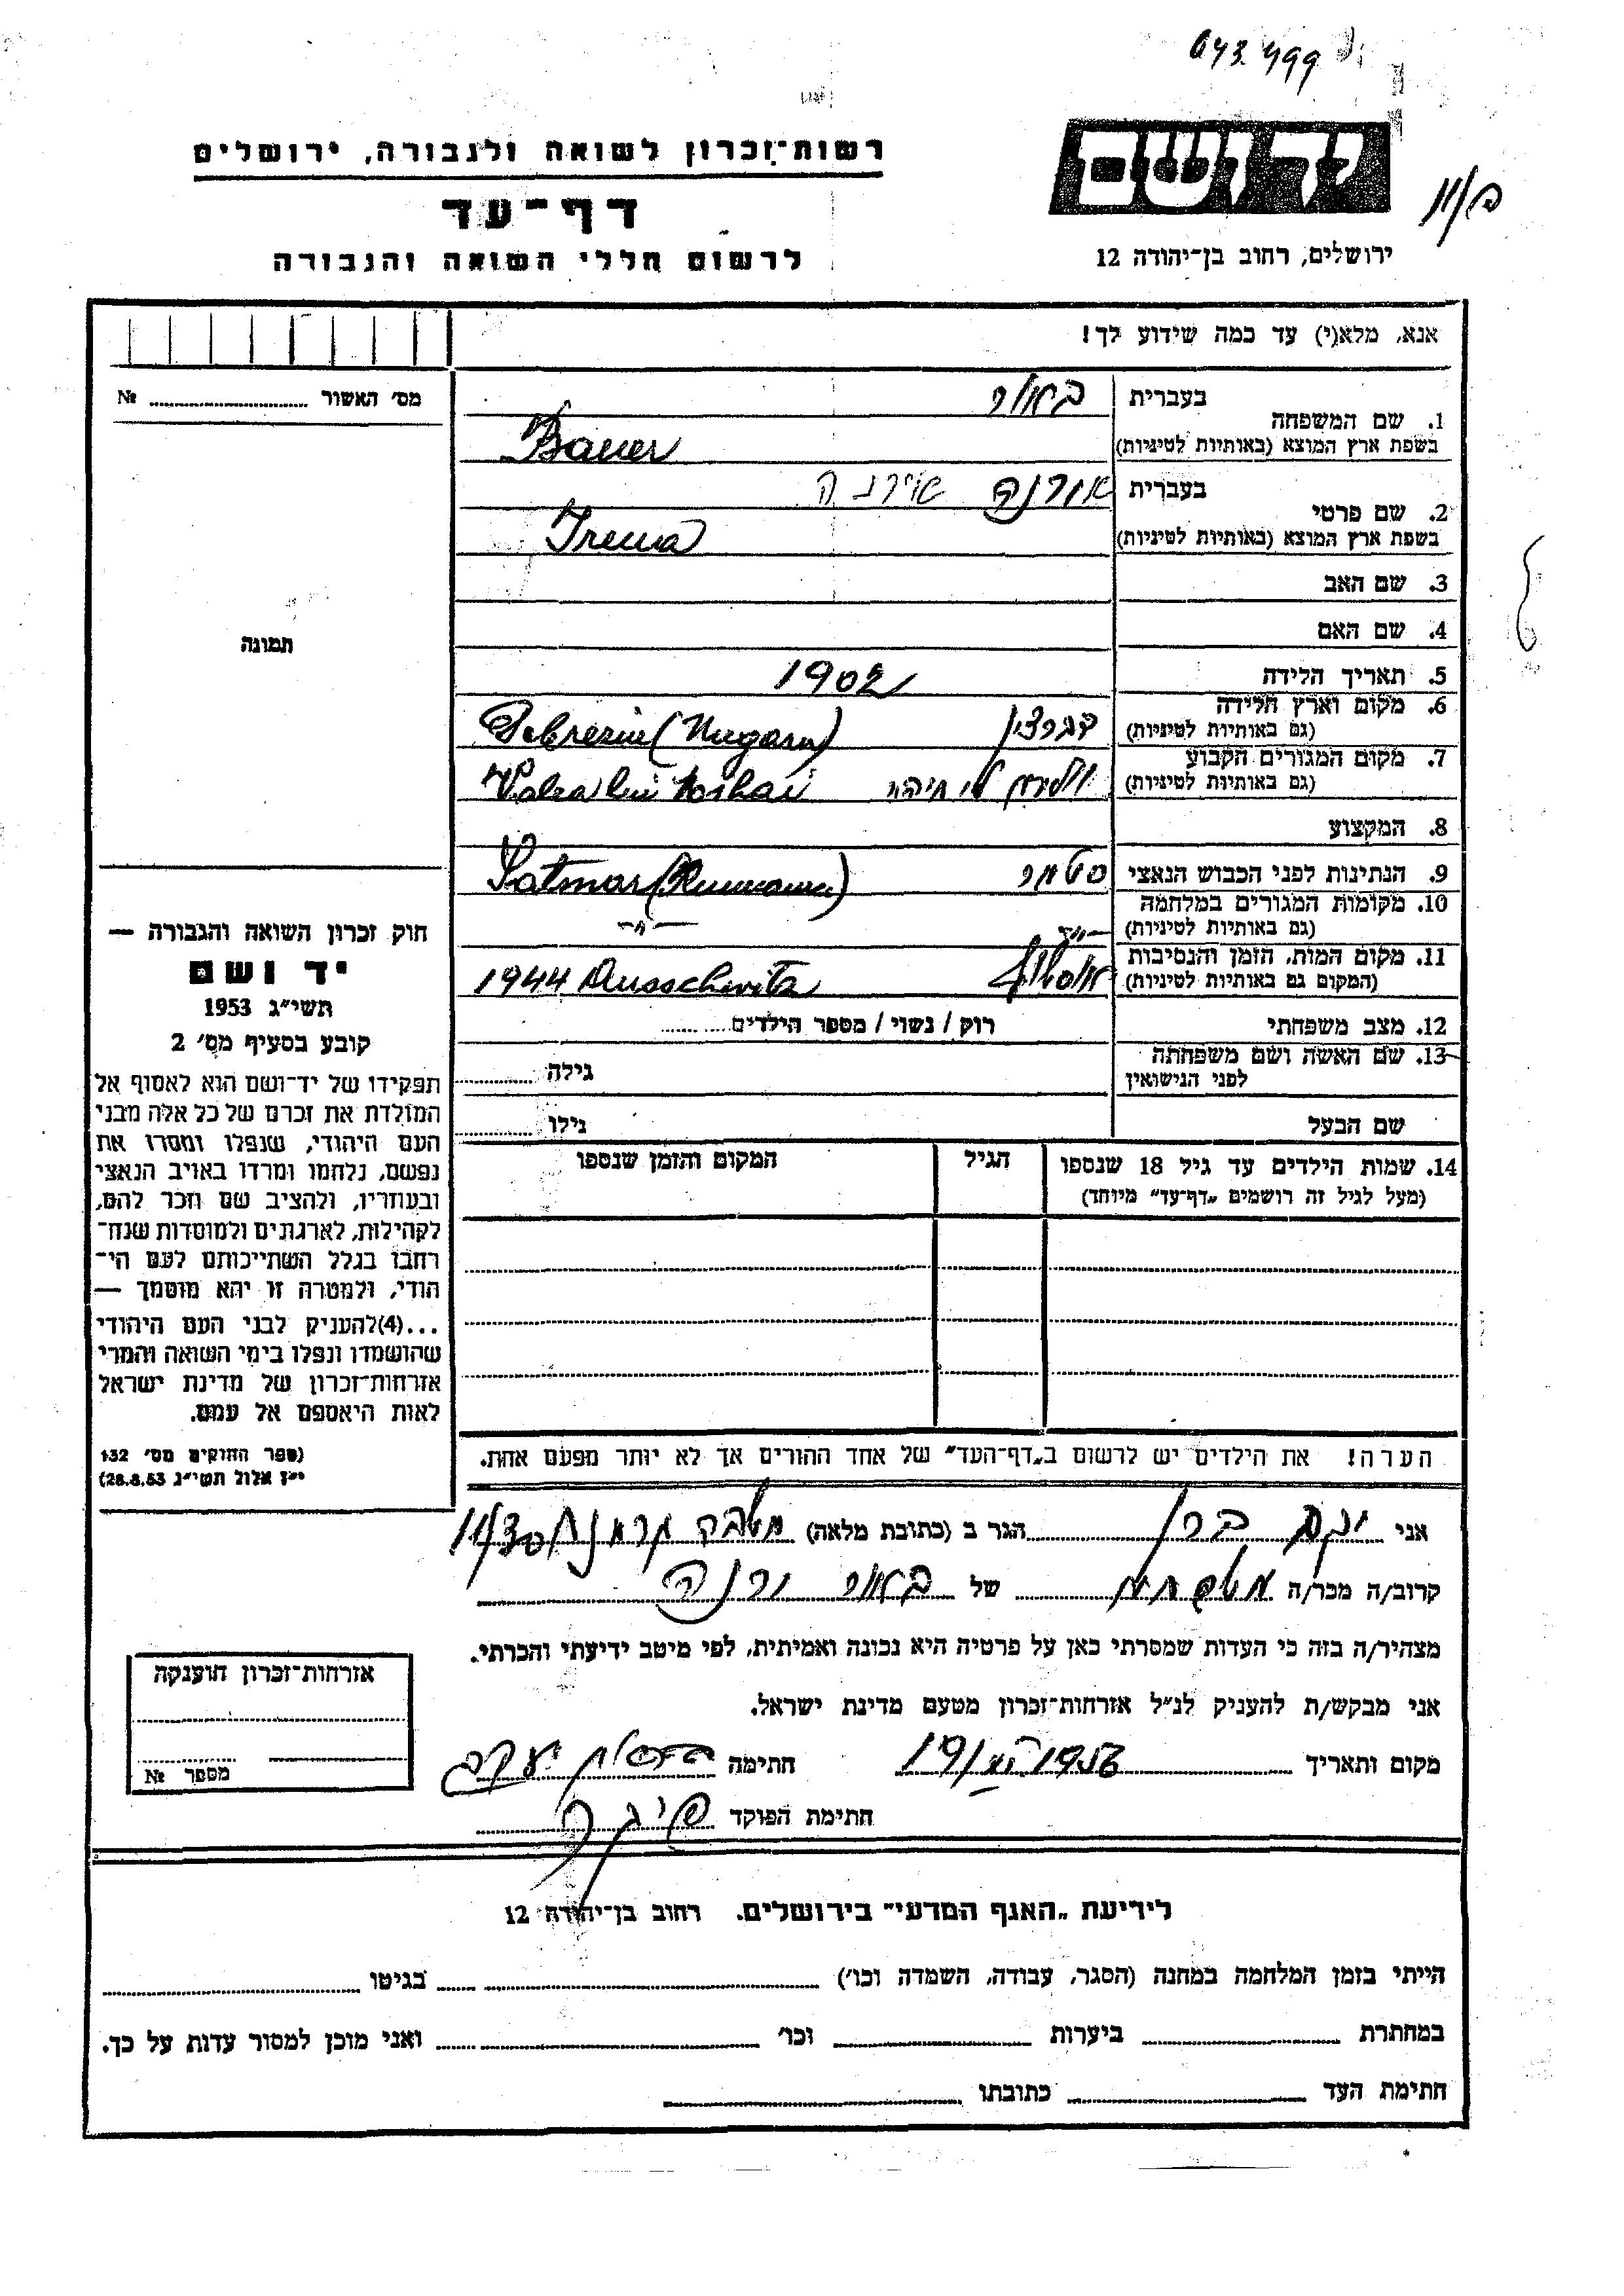 043.499
רשות־זכרון לשואה ולגבורה, ירושלים
יד ושם
דף־עד
ירושלים, רחוב בן־יהודה 12
לרשום חללי השואה והגבורה
אנא, מלא(י) עד כמה שידוע לך!
מס׳ האשור № 
1. שם המשפחה
בעברית באור
בשפת ארץ המוצא (באותיות לטיניות) Bauer
2. שם פרטי
בעברית אירנה
בשפת ארץ המוצא (באותיות לטיניות) Irena
3. שם האב
4. שם האם
תמונה
5. תאריך הלידה 1902
6. מקום וארץ הלידה
(גם באותיות לטיניות) דברצין
7. מקום המגורים הקבוע
(גם באותיות לטיניות) Valea lui
8. המקצוע
9. הנתינות לפני הכבוש הנאצי סטמר Satmar
10. מקומות המגורים במלחמה
(גם באותיות לטיניות) -"-
11. מקום המות, הזמן והנסיבות
(המקום גם באותיות לטיניות) 1944 Ausschwitz
12. מצב משפחתי רוק / נשוי / מספר הילדים
13. שם האשה ושם משפחתה
לפני הנישואין גילה
שם הבעל גילו
14. שמות הילדים עד גיל 18 שנספו הגיל המקום והזמן שנספו
(מעל לגיל זה רושמים „דף־עד” מיוחד)
הערה! את הילדים יש לרשום ב„דף־העד” של אחד ההורים אך לא יותר מפעם אחת.
חוק זכרון השואה והגבורה —
יד ושם
תשי״ג 1953
קובע בסעיף מס׳ 2
תפקידו של יד־ושם הוא לאסוף אל
המולדת את זכרם של כל אלה מבני
העם היהודי, שנפלו ומסרו את
נפשם, נלחמו ומרדו באויב הנאצי
ובעוזריו, ולהציב שם וזכר להם,
לקהילות, לארגונים ולמוסדות שנח־
רבו בגלל השתייכותם לעם הי־
הודי, ולמטרה זו יהא מוסמך —
...(4)להעניק לבני העם היהודי
שהושמדו ונפלו בימי השואה והמרי
אזרחות־זכרון של מדינת ישראל
לאות היאספם אל עמם.
(ספר החוקים מס׳ 132
י״ז אלול תשי״ג 28.8.53)
אני הגר ב (כתובת מלאה) 11/30
קרוב/ה מכר/ה של באור
מצהיר/ה בזה כי העדות שמסרתי כאן על פרטיה היא נכונה ואמיתית, לפי מיטב ידיעתי והכרתי.
אני מבקש/ת להעניק לנ״ל אזרחות־זכרון מטעם מדינת ישראל.
מקום ותאריך חתימה
חתימת הפוקד
אזרחות־זכרון הוענקה
מספר №
לידיעת „האגף המדעי” בירושלים. רחוב בן־יהודה 12
הייתי בזמן המלחמה במחנה (הסגר, עבודה, השמדה וכו׳) בגיטו
במחתרת ביערות וכו׳ ואני מוכן למסור עדות על כך.
חתימת העד כתובתו